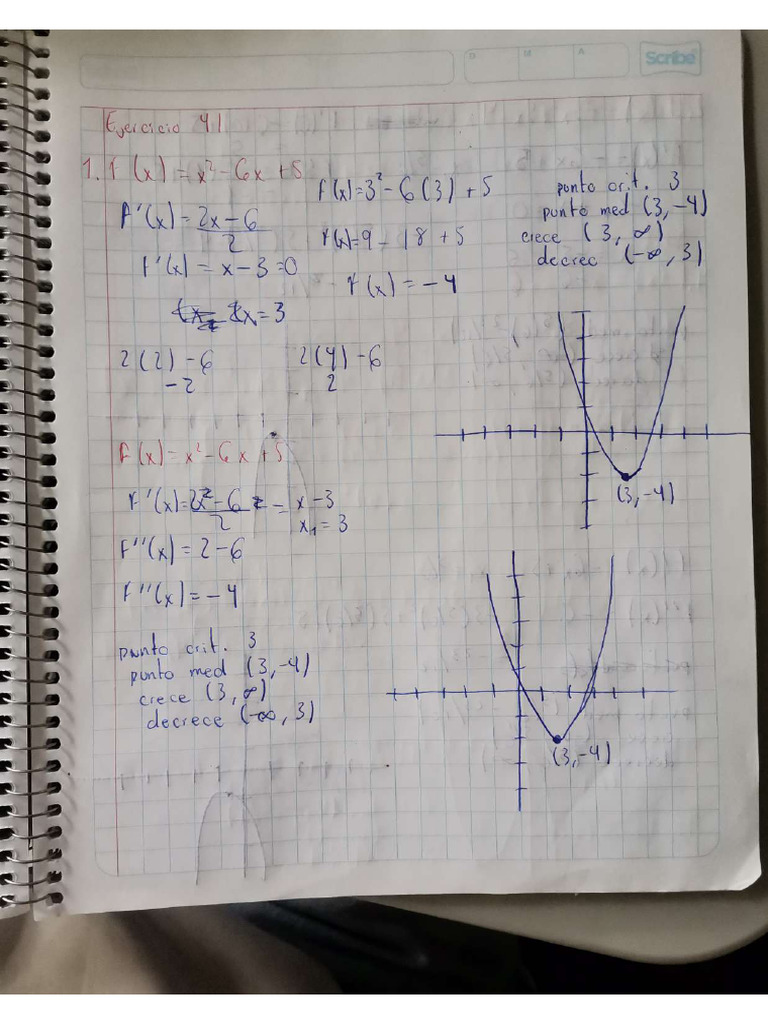 Scribe
D M A
Ejercicio 41
1. f(x) = x² - 6x + 5
f'(x) = 2x - 6
2
f'(x) = x - 3 = 0
x = 3
f(x) = 3² - 6(3) + 5
f(x) = 9 - 18 + 5
f(x) = -4
punto crit. 3
punto med (3, -4)
crece (3, ∞)
decrec (-∞, 3)
2(2) - 6
-2
2(4) - 6
2
(3, -4)
f(x) = x² - 6x + 5
f'(x) = 2x² - 6 = x - 3
2
x₁ = 3
f''(x) = 2 - 6
f''(x) = -4
punto crit. 3
punto med (3, -4)
crece (3, ∞)
decrece (-∞, 3)
(3, -4)